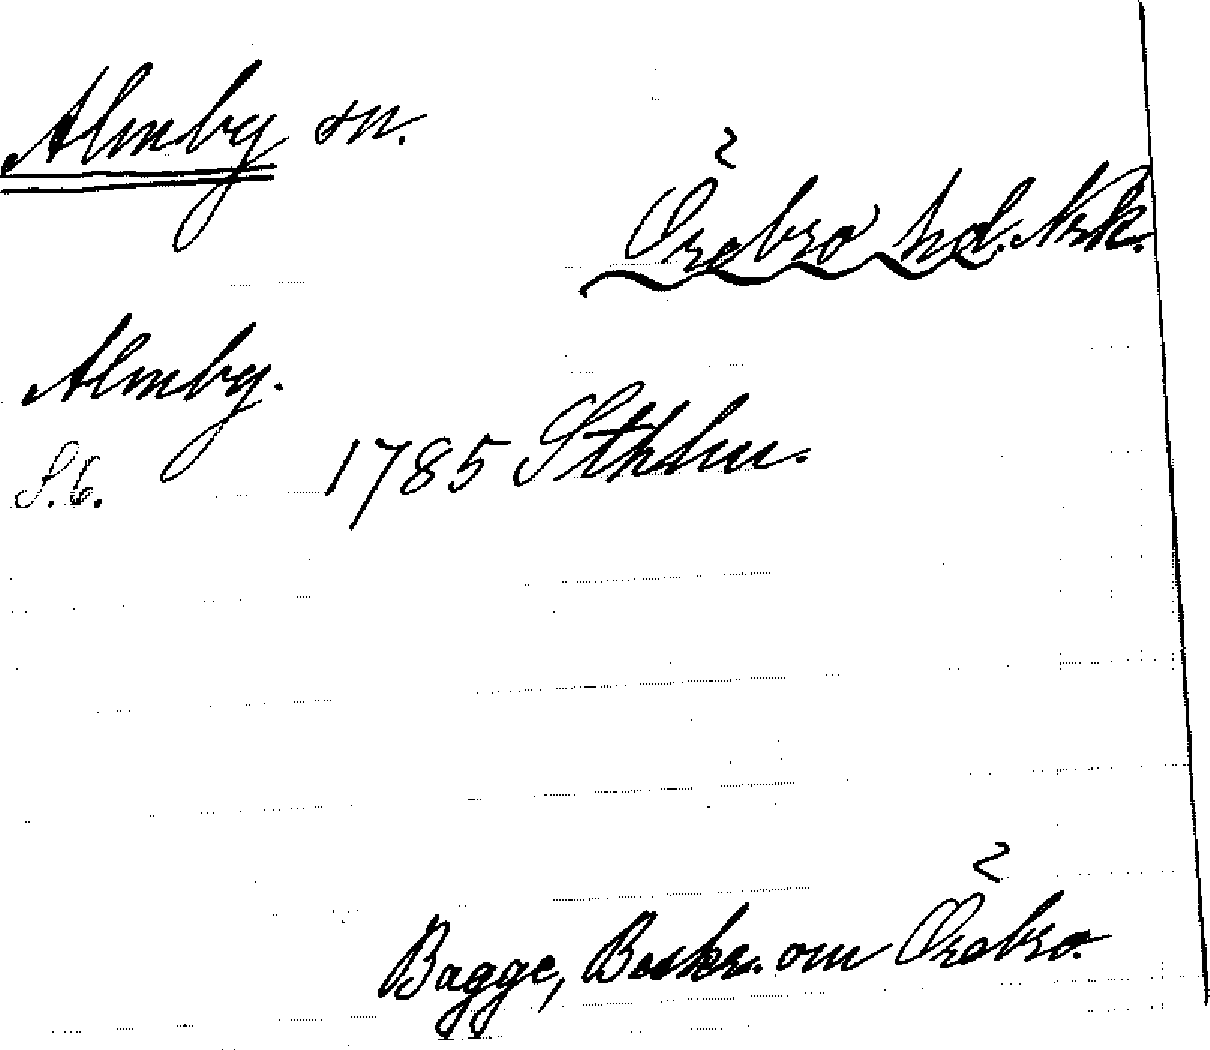 Almby sn.
Örebro hd. Nrk.
Almby.
S. 6. 1785 Sthlm.
Bagge, Beskr. om Örebro.